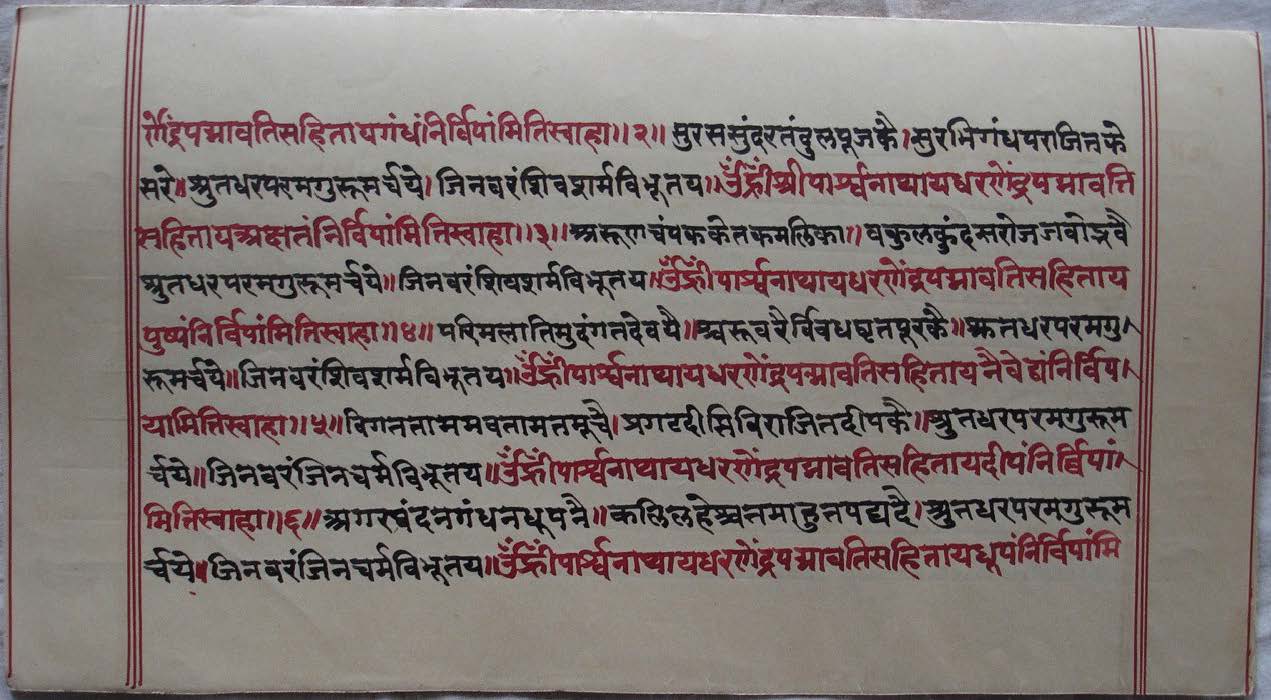 णेंद्रपद्मावतिसहितायगंधंनिर्विपांमितिस्वाहा॥२॥ सुरससुंदरतंदुलपूजकै।सुरभिगंधपराजितके
सरे॥श्रुतधरपरमगुरूमर्चये।जिनवरंशिवशर्मविभूतय॥ॐह्रीँश्रीपार्श्वनाथायधरणेंद्रपद्मावत्ति
सहितायअक्षतंनिर्विपांमितिस्वाहा॥३॥अरूणचंपककेतकमलिका॥वकुलकुंदसरोजजवोद्भवै
श्रुतधरपरमगुरूमर्चये॥जिनवरंशिवशर्मविभूतय॥ॐह्रीँपार्श्वनाथायधरणेंद्रपद्मावतिसहिताय
पुष्पंनिर्विपांमितिस्वाहा॥४॥ परिमलातिमुदंगतदेवयै॥श्चरूवरैर्विवधघृतपूरकै॥श्रुतधरपरमगु
रूमर्चये॥जिनवरंशिवशर्मविभूतय॥ॐह्रीँपार्श्वनाथायधरणेंद्रपद्मावतिसहितायनैवेद्यंनिर्विप
यामितिस्वाहा॥५॥विगततामभवतामतमूचै।प्रगटदीप्तिविराजितदीपकै॥श्रुतधरपरमगुरूम
र्चये॥जिनवरंजिनचर्मविभूतय॥ॐह्रीँपार्श्वनाथायधरणेंद्रपद्मावतिसहितायदीपंनिर्विपां
मितिस्वाहा॥६॥अगरचंदनगंधनधूपनै॥कलिलहेश्चतमाहुतपद्यदै।श्रुतधरपरमगुरूम
र्चये॥जिनवरंजिनचर्मविभूतय॥ॐह्रीँपार्श्वनाथायधरणेंद्रपद्मावतिसहितायधूपंनिर्विपांमि